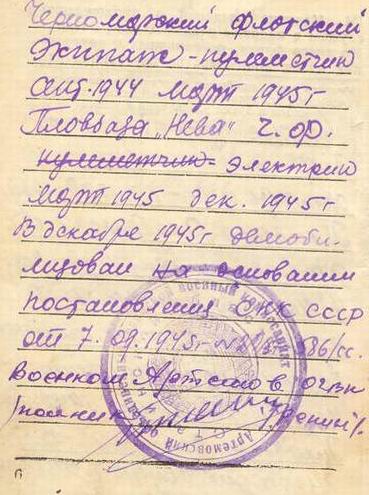 Черноморский флотский
экипаж - пулеметчик
окт. 1944 март 1945 г
Плавбаза „Нева" Ч. Ф.
пулеметчик электрик
март 1945 дек. 1945 г
В декабре 1945 г демоби-
лизован на основании
постановления СНК СССР
от 7. 09. 1945 г
Военком
военный комиссариат
Артемовский